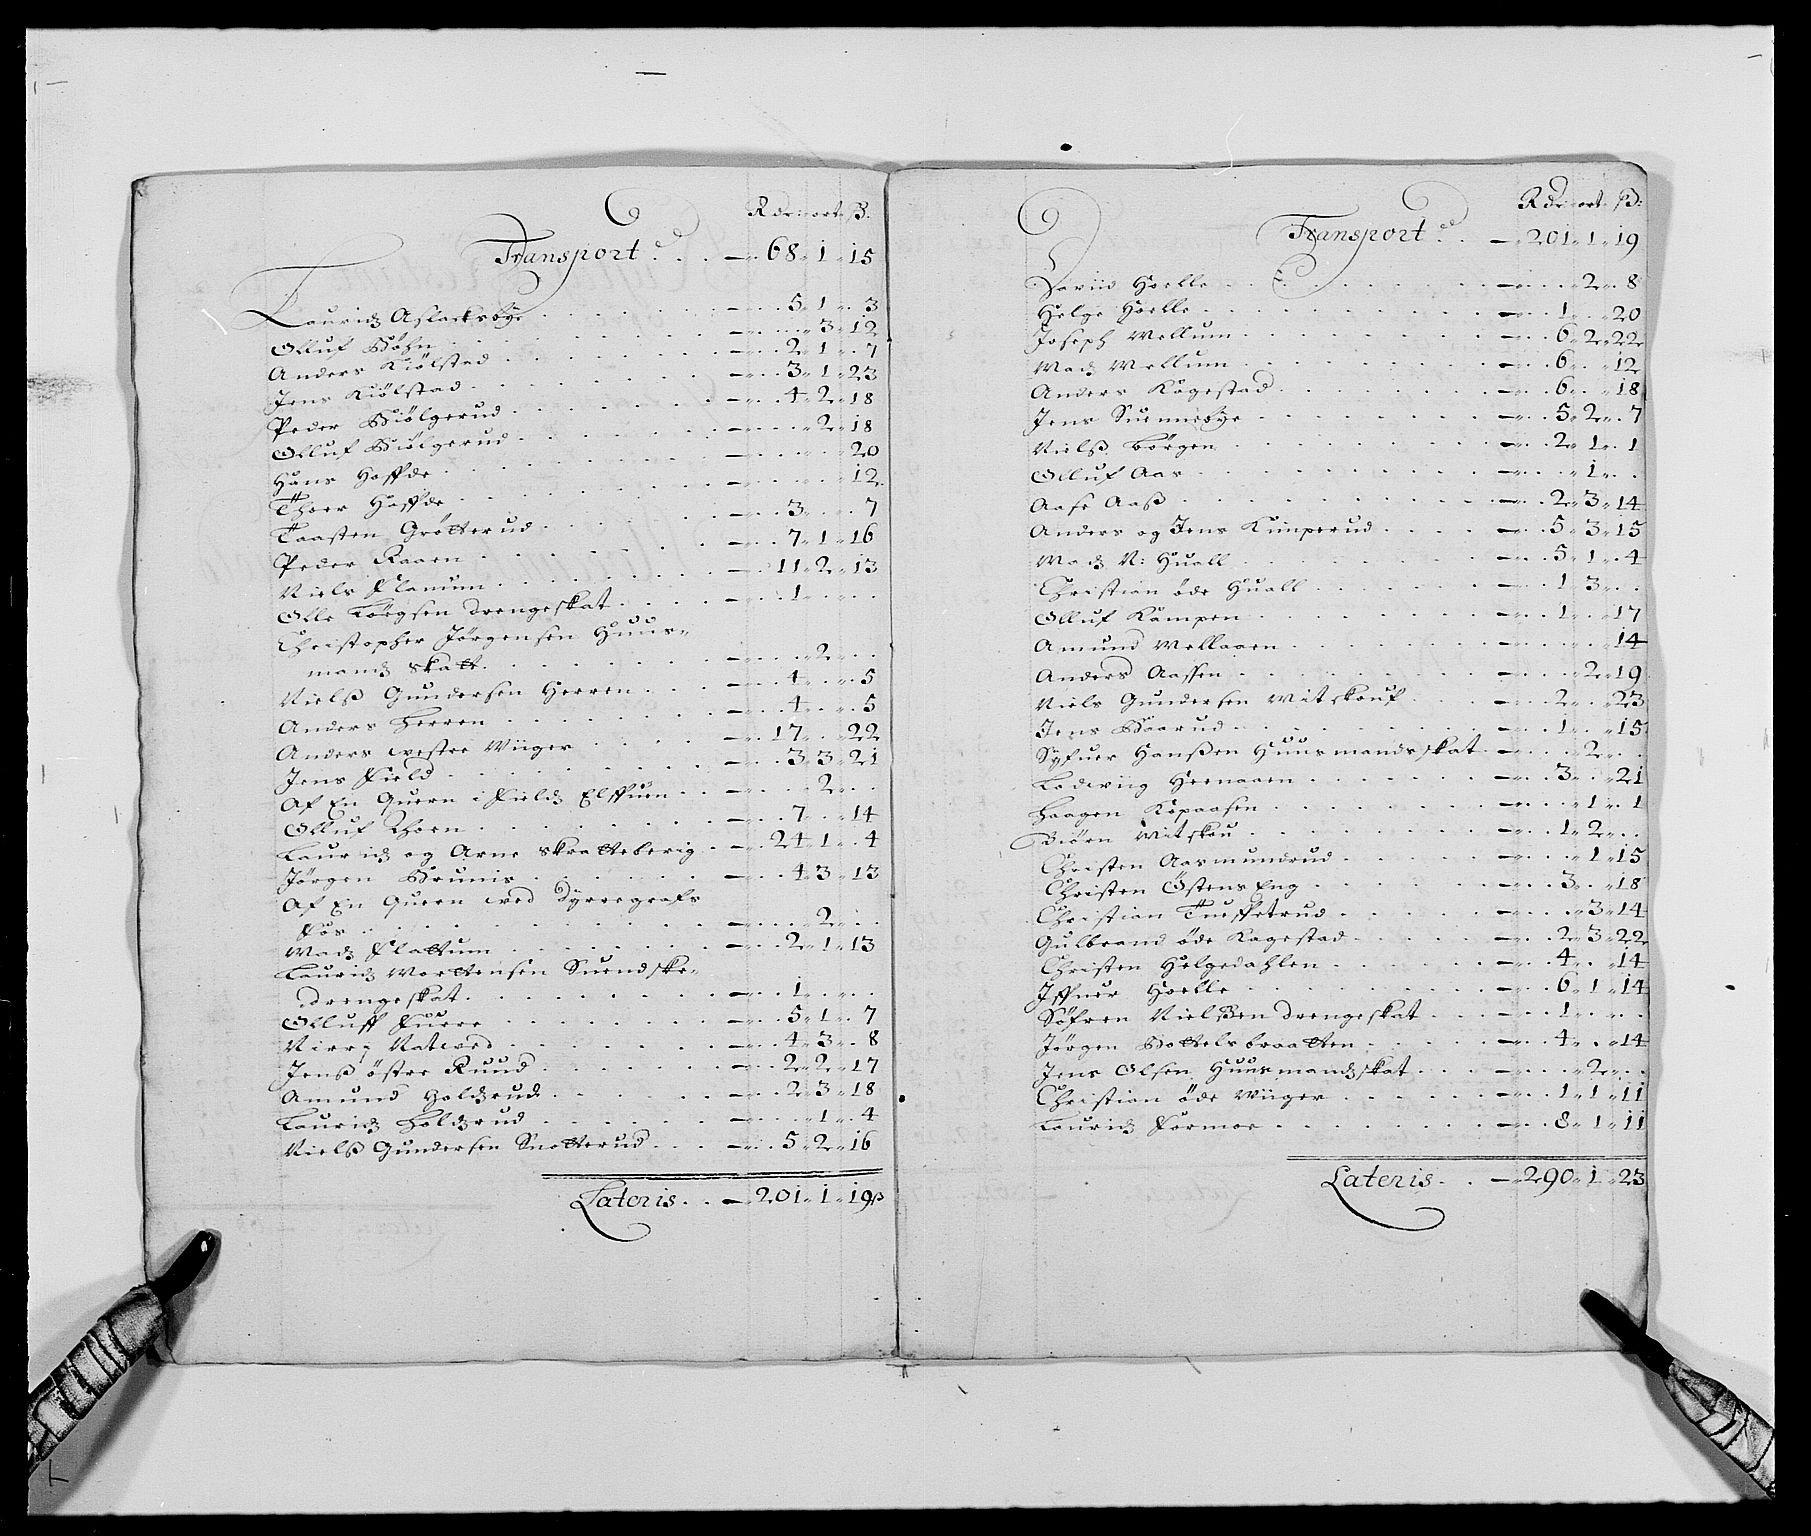 Rdr: ort. ß.
Transport . . . 68 . 1 . 15
Lauridz Aslacksbye . . . 5 . 1 . 3
Olluf Böhn . . . 3 . 12
Anders Kiölstad . . . 2 . 1 . 7
Jens Kiölstad . . . 3 . 1 . 23
Peder Biölgerud . . . 4 . 2 . 18
Olluf Biölgerud . . . 2 . 18
Hans Hoffde . . . 20
Thoer Hoffde . . . 12
Taasten Grötterud . . . 3 . . 7
Peder Raaen . . . 7 . 1 . 16
Niels Flanum . . . 11 . 2 . 13
Olle Börgsen drengeskat . . . 1 . . .
Christopher Jörgensen Huus-
mandz skatt . . . 2 . .
Nielß Gundersen Herren . . . 4 . . 5
Anders Herren . . . 4 . . 5
Anders westre Wiiger . . . 17 . . 22
Jens Field . . . 3 . 3 . 21
Af En Quern i Fieldz Elffuen . . . 2 . .
Olluf Thoen . . . 7 . . 14
Lauridz og Arne Skratteberig . . . 24 . 1 . 4
Jörgen Brunis . . . 4 . 3 . 13
Af En Quern wed Dyregrafs
Fos . . . 2 . .
Madz Flattum . . . 2 . 1 . 13
Lauridz Mortensen Suendske-
drengeskat . . . 1 . . .
Olluff Fuere . . . 5 . 1 . 7
Nirri Natwed . . . 4 . 3 . 8
Jenß östre Ruud . . . 2 . 2 . 17
Amund Holdzrud . . . 2 . 3 . 18
Lauridz Holdzrud . . . 1 . 4
Nielß Gundersen Snotterud . . . 5 . 2 . 16
Lateris . . 201 . 1 . 19 ß
Rdr: ort. ß:
Transport . . 201 . 1 . 19
Daviid Hoelle . . . 2 . 8
Helge Hoelle . . . 1 . . 20
Joseph Mellum . . . 6 . 2 . 22
Madz Mellum . . . 6 . . 12
Anders Kögestad . . . 6 . . 18
Jens Suennebye . . . 5 . 2 . 7
Nielß Börgen . . . 2 . 1 . 1
Olluf Aas . . . 1 . .
Aase Aaß . . . 2 . 3 . 14
Anders og Jens Kimperud . . . 5 . 3 . 15
Madz N: Huall . . . 5 . 1 . 4
Christian öde Huall . . . 1 . 3 . .
Olluf Kampen . . . 1 . . 17
Amund Mellaaen . . . 14
Anders Aassen . . . 2 . 19
Niels Gundersen Witskouf . . . 2 . . 23
Jens Baarud . . . 1 . . 15
Syfuer Hanßen Huusmandsskat . . . 2 . .
Lodwiig Hernaaen . . . 3 . . 21
Haagen Kopaasen . . . 1 . 1
Biörn Witskou . . . 1 . 2 . .
Christen Aasmundrud . . . 1 . 15
Christen Östens Eng . . . 3 . . 18
Christian Tueffetrud . . . 3 . 14
Gulbrand öde Kagestad . . . 2 . 3 . 22
Christen Helgedahlen . . . 4 . . 14
Iffuer Hoelle . . . 6 . 1 . 14
Söfren Nielßen drengeskat . . . 1 . . .
Jörgen Bottelsbraatten . . . 4 . . 14
Jens Olsen Huusmandzskat . . . 2 . .
Christian öde Wiiger . . . 1 . 1 . 11
Lauridz Formoe . . . 8 . 1 . 11
Lateris . . 290 . 1 . 23